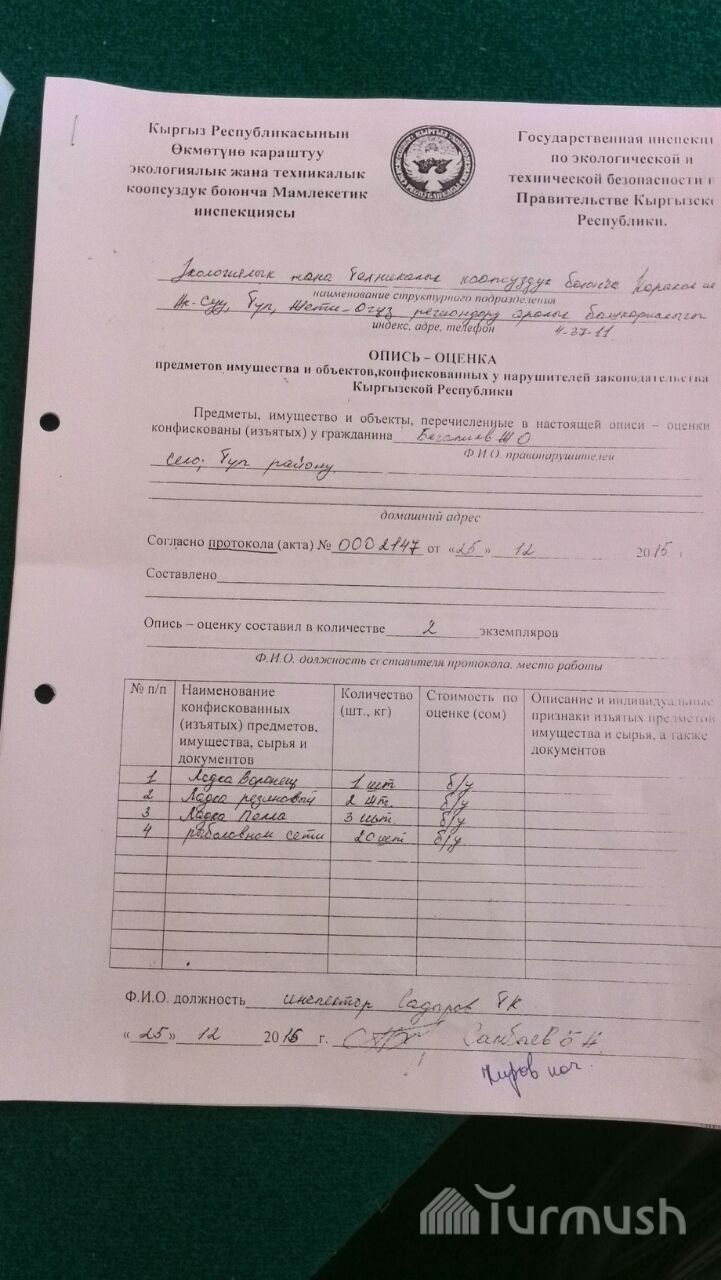 Кыргыз Республикасынын
Өкмөтүнө караштуу
экологиялык жана техникалык
коопсуздук боюнча Мамлекетик
инспекциясы
Государственная инспекци
по экологической и
технической безопасности п
Правительстве Кыргызско
Республики.
Экологиялык жана Техникалык коопсуздук боюнча Каракол ш
наименование структурного подразделения
Ак-Суу, Түп, Жети-Огуз региондор аралык башкармалыгы
индекс, адре, телефон 4-37-11
ОПИСЬ – ОЦЕНКА
предметов имущества и объектов,конфискованных у нарушителей законодательства
Кыргызской Республики
Предметы, имущество и объекты, перечисленные в настоящей описи – оценки
конфискованы (изъятых) у гражданина Ж О
Ф.И.О. правонарушителей
село; Түп району
домашний адрес
Согласно протокола (акта) № 0002147 от «25» 12 2015 г
Составлено
Опись – оценку составил в количестве 2 экземпляров
Ф.И.О. должность составителя протокола, место работы
№ п/п Наименование конфискованных (изъятых) предметов, имущества, сырья и документов Количество (шт., кг) Стоимость по оценке (сом) Описание и индивидуальные признаки изъятых предметов имущества и сырья, а также документов
1 Лодка Воронеш 1 шт б/у
2 Лодка резиновый 2 шт. б/у
3 Лодка Пелла 3 шт. б/у
4 рыболовном сети 20 шт б/у
Ф.И.О. должность инспектор Садыров Т К
«25» 12 2015 г.
Turmush